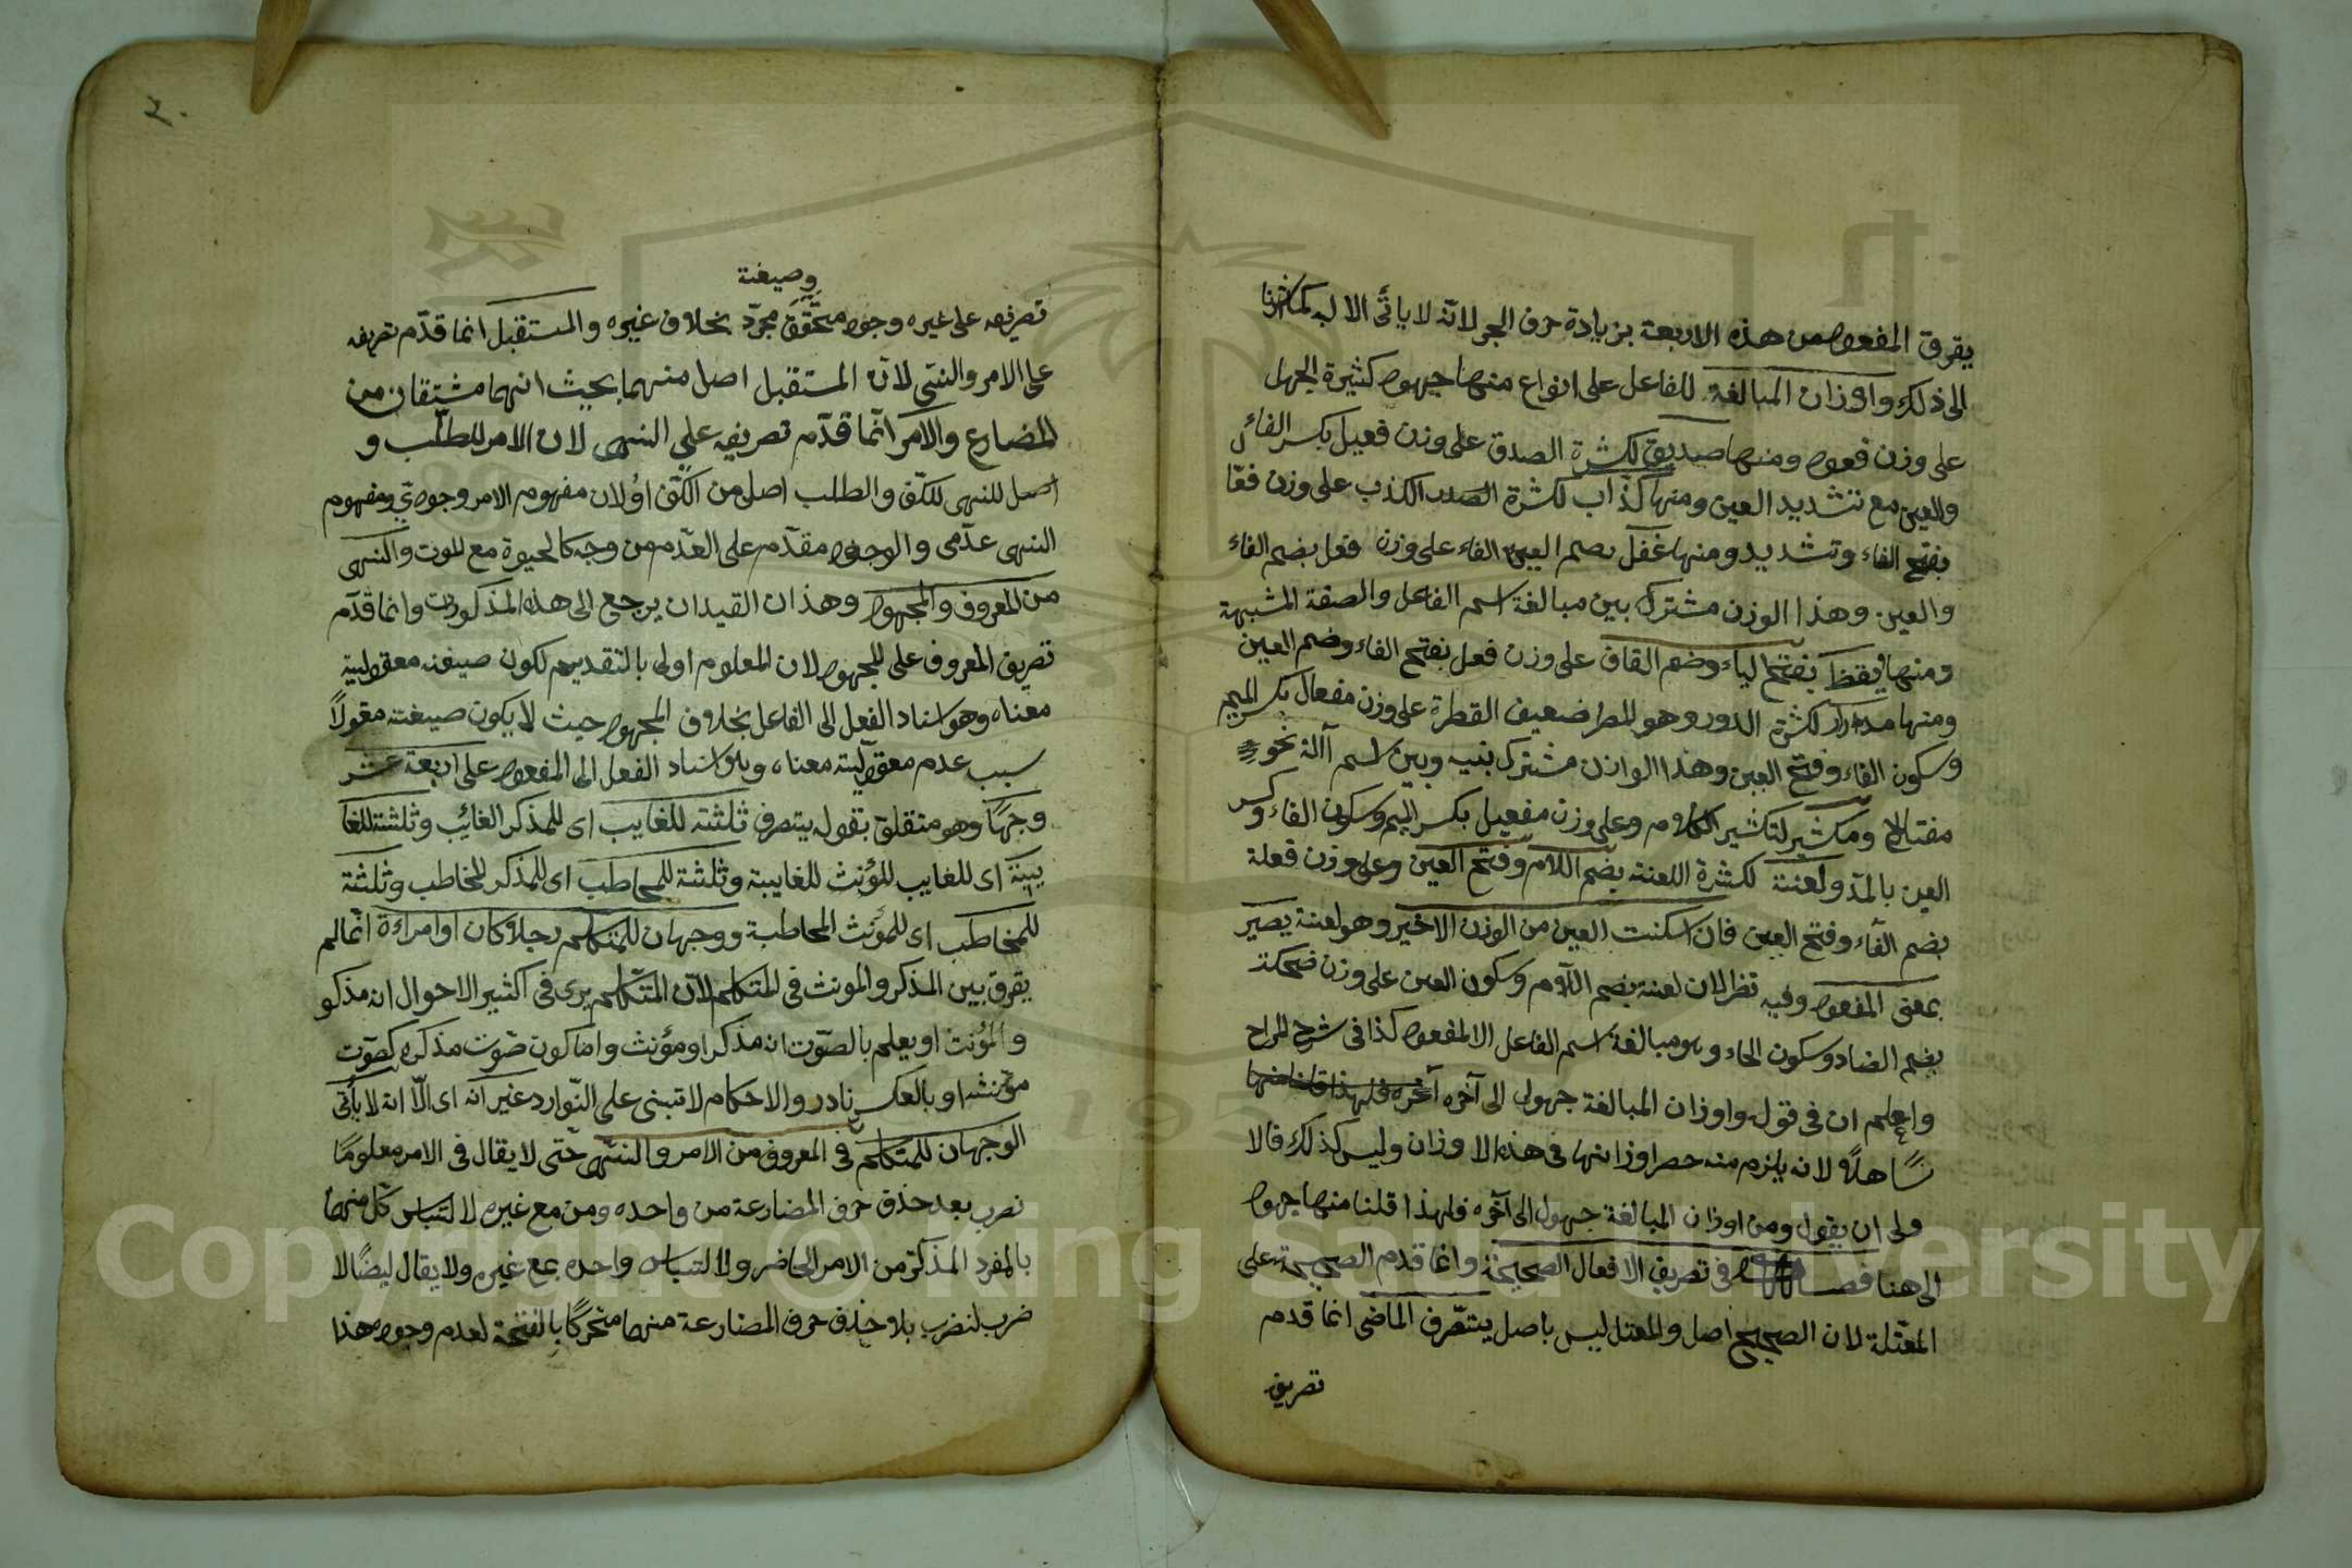 يفرق المفعول من هذه الاربعة بزيادة حرف الجر لانه لا يأتى الا به كما اشرنا
الى ذلك واوزان المبالغة للفاعل على انواع منها جهول كثيرة الجهل
على وزن فعول ومنها صديق لكثرة الصدق على وزن فعيل بكسر الفاء
والعين مع تشديد العين ومنها كذّاب لكثرة الكذب على وزن فعّا
بفتح الفاء وتشديد ومنها غفل بضم الغين الفاء على وزن فعل بضم الفاء
والعين وهذا الوزن مشترك بين مبالغة اسم الفاعل والصفة المشبهة
ومنها يقظ بفتح الياء وضم القاف على وزن فعل بفتح الفاء وضم العين
ومنها مدرار لكثرة الدور وهو المطر ضعيف القطرة على وزن مفعال بكسر الميم
وسكون الفاء وفتح العين وهذا الوازن مشترك بنيه وبين اسم آالة نحو
مفتاح ومكثير لتكثير الكلام وعلى وزن مفعيل بكسر الميم وسكون الفاء وكسر
العين بالمدّ ولعنة لكثرة اللعنة بضم اللام وفتح العين وعلى وزن فعلة
بضم الفاء وفتح العين فان اسكنت العين من الوزن الاخير وهو لعنة يصير
بمعنى المفعول وفيه نظر لان لعنة بضم اللام وسكون العين على وزن ضحكة
بضم الضاد وسكون الحاء وهو مبالغة اسم الفاعل الا لمفعول كذا فى شرح المراح
واعلم ان فى قوله واوزان المبالغة جهول الى آخره
تساهلاً لانه يلزم منه حصر اوزانها فى هذه الاوزان وليس كذلك فالا
ولى ان يقول ومن اوزان المبالغة جهول الى آخره فلهذا قلنا منها جهول
الى هنا فصل فى تصريف الافعال الصحيحة وانما قدم الصحيحة على
المعتلة لان الصحيح اصل والمعتل ليس باصل يتصرف الماضى انما قدم
تصريفه
٢٠
وصيغته
تصريفه على غيره وجوده متحقّق مجرّد بخلاف غيره والمستقبل انما قدّم تصريفه
على الامر والنهى لانّ المستقبل اصل منهما بحيث انهما مشتقان من
المضارع والامر انّما قدّم تصريفه على النهى لان الامر للطلب و
اصل للنهى للكفّ والطلب اصل من الكفّ اولان مفهوم الامر وجودي ومفهوم
النهى عدمى والوجود مقدّم على العدم من وجه كالحيوة مع الموت والنهى
من المعروف والمجهول وهذان القيدان يرجع الى هذه المذكورات وانما قدّم
تصريف المعروف على المجهول لان المعلوم اولى بالتقديم لكون صيغته معقولية
معناه وهو اسناد الفعل الى الفاعل بخلاف المجهول حيث لا يكون صيغته مقولاً
سبب عدم معقوليته معناه وهو اسناد الفعل الى المفعول على اربعة عشر
وجهًا وهو متعلق بقوله يتصرف ثلثة للغايب اى للمذكر الغائب وثلثة للغا
يبة اى للغايب للمؤنث للغايبة وثلثة للمخاطب اى للمذكر المخاطب وثلثة
للمخاطب اى للمؤنث المخاطبة ووجهان للمتكلم رجلا كان او امراءة انّما لم
يفرق بين المذكر والمونث فى المتكلم لانّ المتكلم يرى فى اكثير الاحوال انه مذكو
والمؤنث او يعلم بالصّوت انه مذكر او مؤنث واما كون صوت مذكره كصوت
مؤنثه او بالعكس نادر والاحكام لا تبنى على النّوارد غير انه اى الّا انه لا يأتى
الوجهان للمتكلم فى المعروف من الامر والنهى حتى لا يقال فى الامر معلومًا
نضرب بعد حذف حرف المضارعة من واحده ومن مع غيره لالتباس كلّ منهما
بالمفرد المذكر من الامر الحاضر ولالتباس واحده بمع غيره ولا يقال ايضًا لا
ضرب لنضرب بلا حذف حرف المضارعة منهما متحركًا بالفتحة لعدم وجود هذا
Copyright © King Saud University